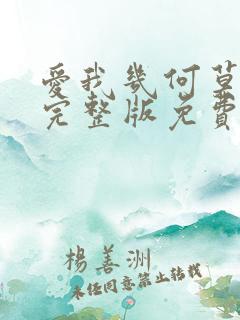 愛我幾何草
完整版免費
楊善洲
未经同意禁止转载